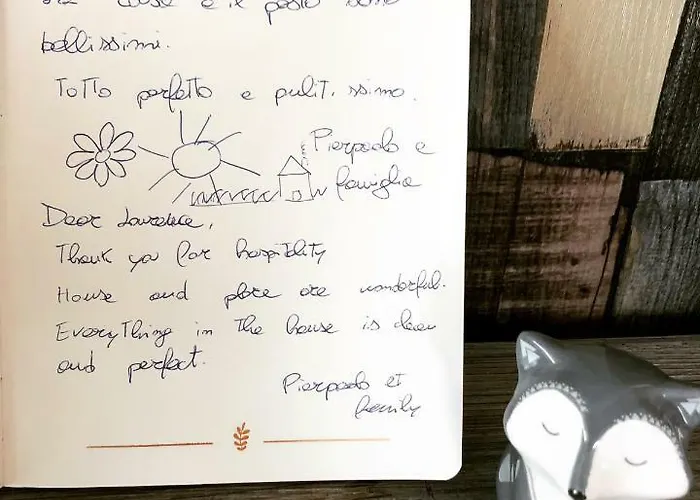 casa e il posto sono
bellissimi.
Totto perfetto e pulitissimo.
Pierpaolo e
famiglia
Dear Laurence,
Thank you for hospitality
House and place are wonderful.
Everything in the house is clean
and perfect.
Pierpaolo et
family